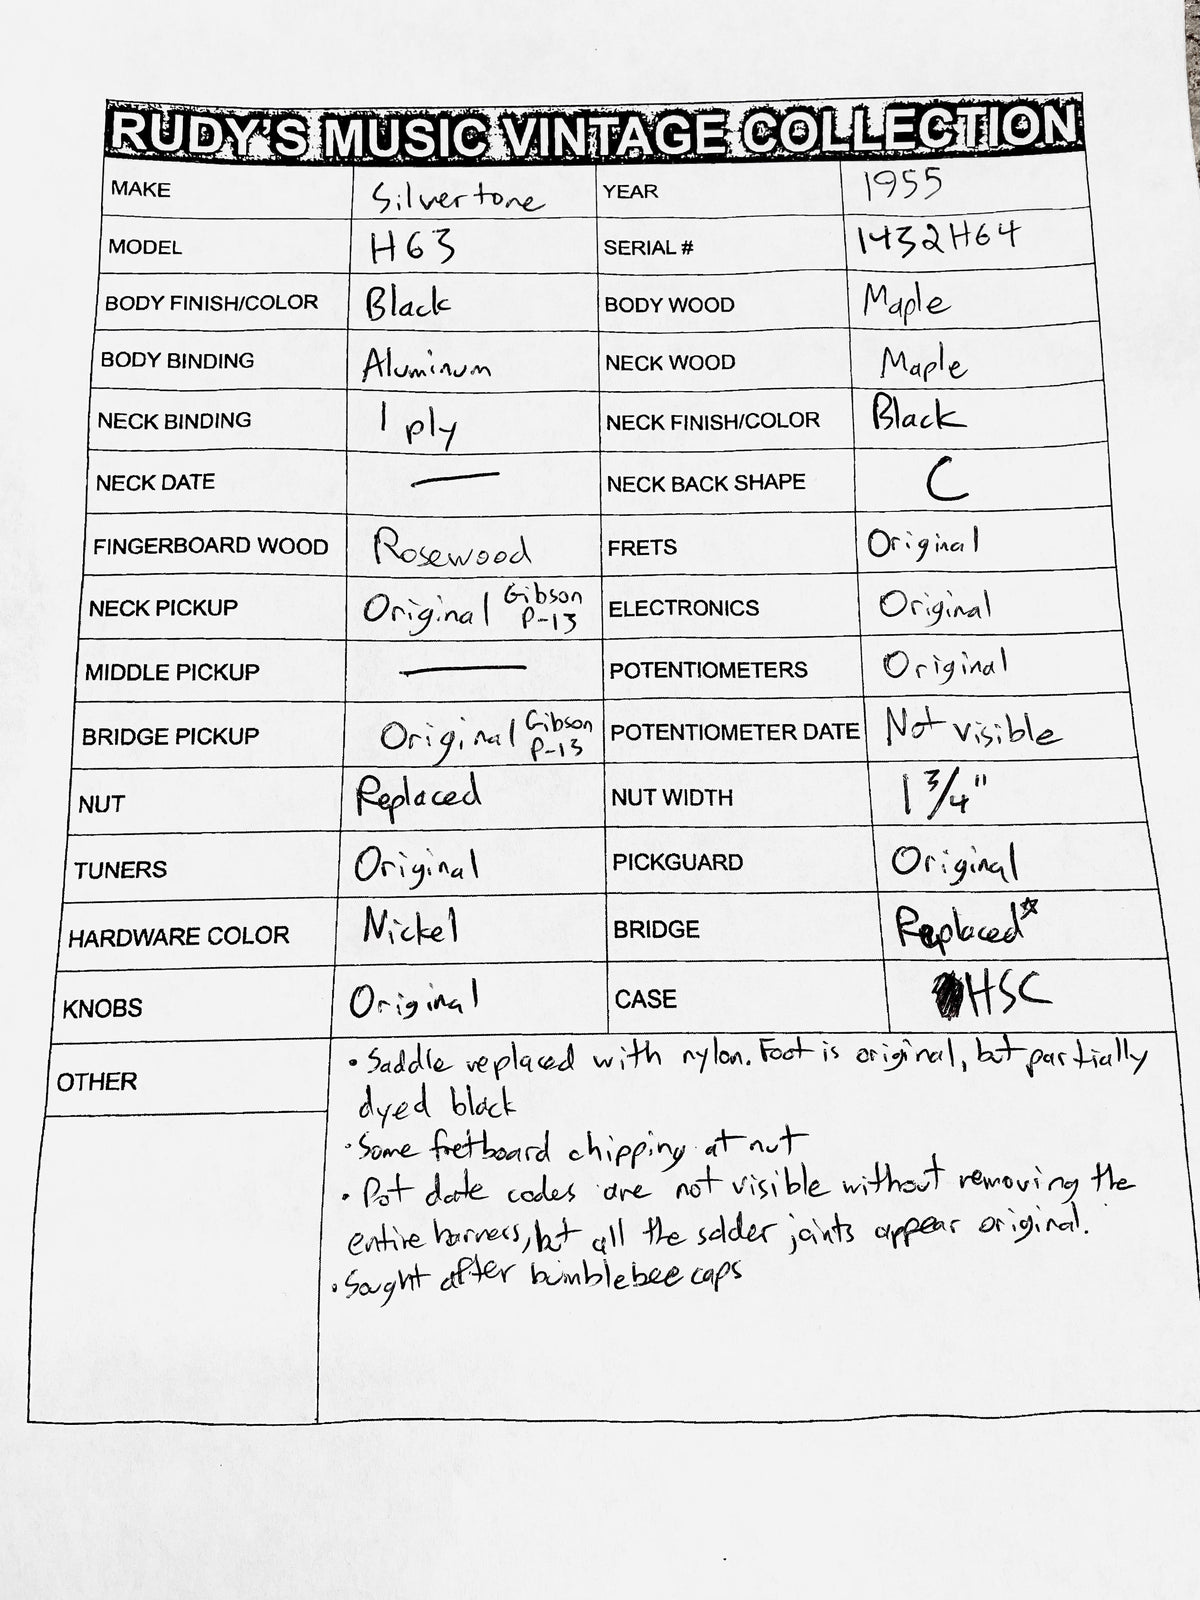 RUDY'S MUSIC VINTAGE COLLECTION
MAKE Silvertone YEAR 1955
MODEL H63 SERIAL # 1432H64
BODY FINISH/COLOR Black BODY WOOD Maple
BODY BINDING Aluminum NECK WOOD Maple
NECK BINDING 1 ply NECK FINISH/COLOR Black
NECK DATE — NECK BACK SHAPE C
FINGERBOARD WOOD Rosewood FRETS Original
NECK PICKUP Original Gibson P-13 ELECTRONICS Original
MIDDLE PICKUP — POTENTIOMETERS Original
BRIDGE PICKUP Original Gibson P-13 POTENTIOMETER DATE Not visible
NUT Replaced NUT WIDTH 1 3/4"
TUNERS Original PICKGUARD Original
HARDWARE COLOR Nickel BRIDGE Replaced☆
KNOBS Original CASE HSC
OTHER
• Saddle replaced with nylon. Foot is original, but partially
dyed black
• Some fretboard chipping at nut
• Pot date codes are not visible without removing the
entire harness, but all the solder joints appear original.
• Sought after bumblebee caps